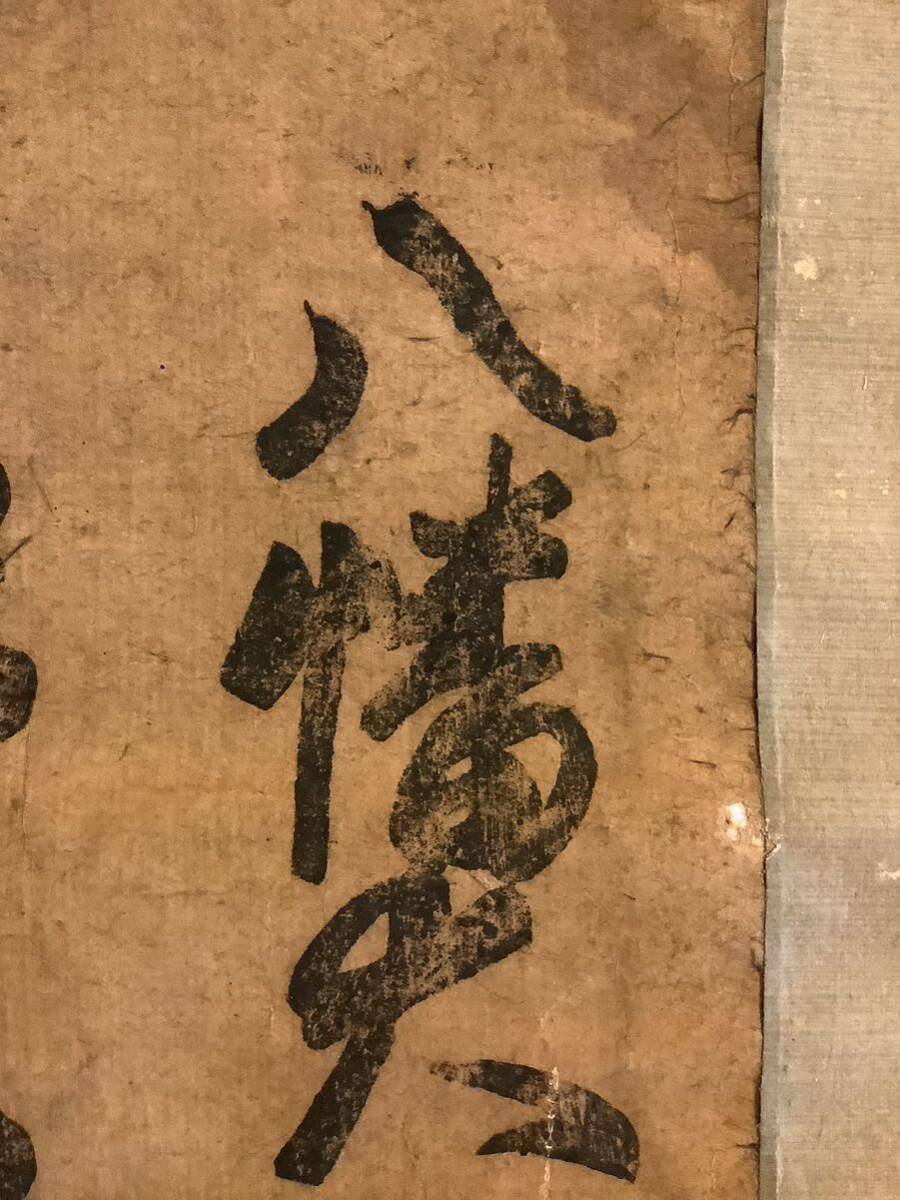 八幡大